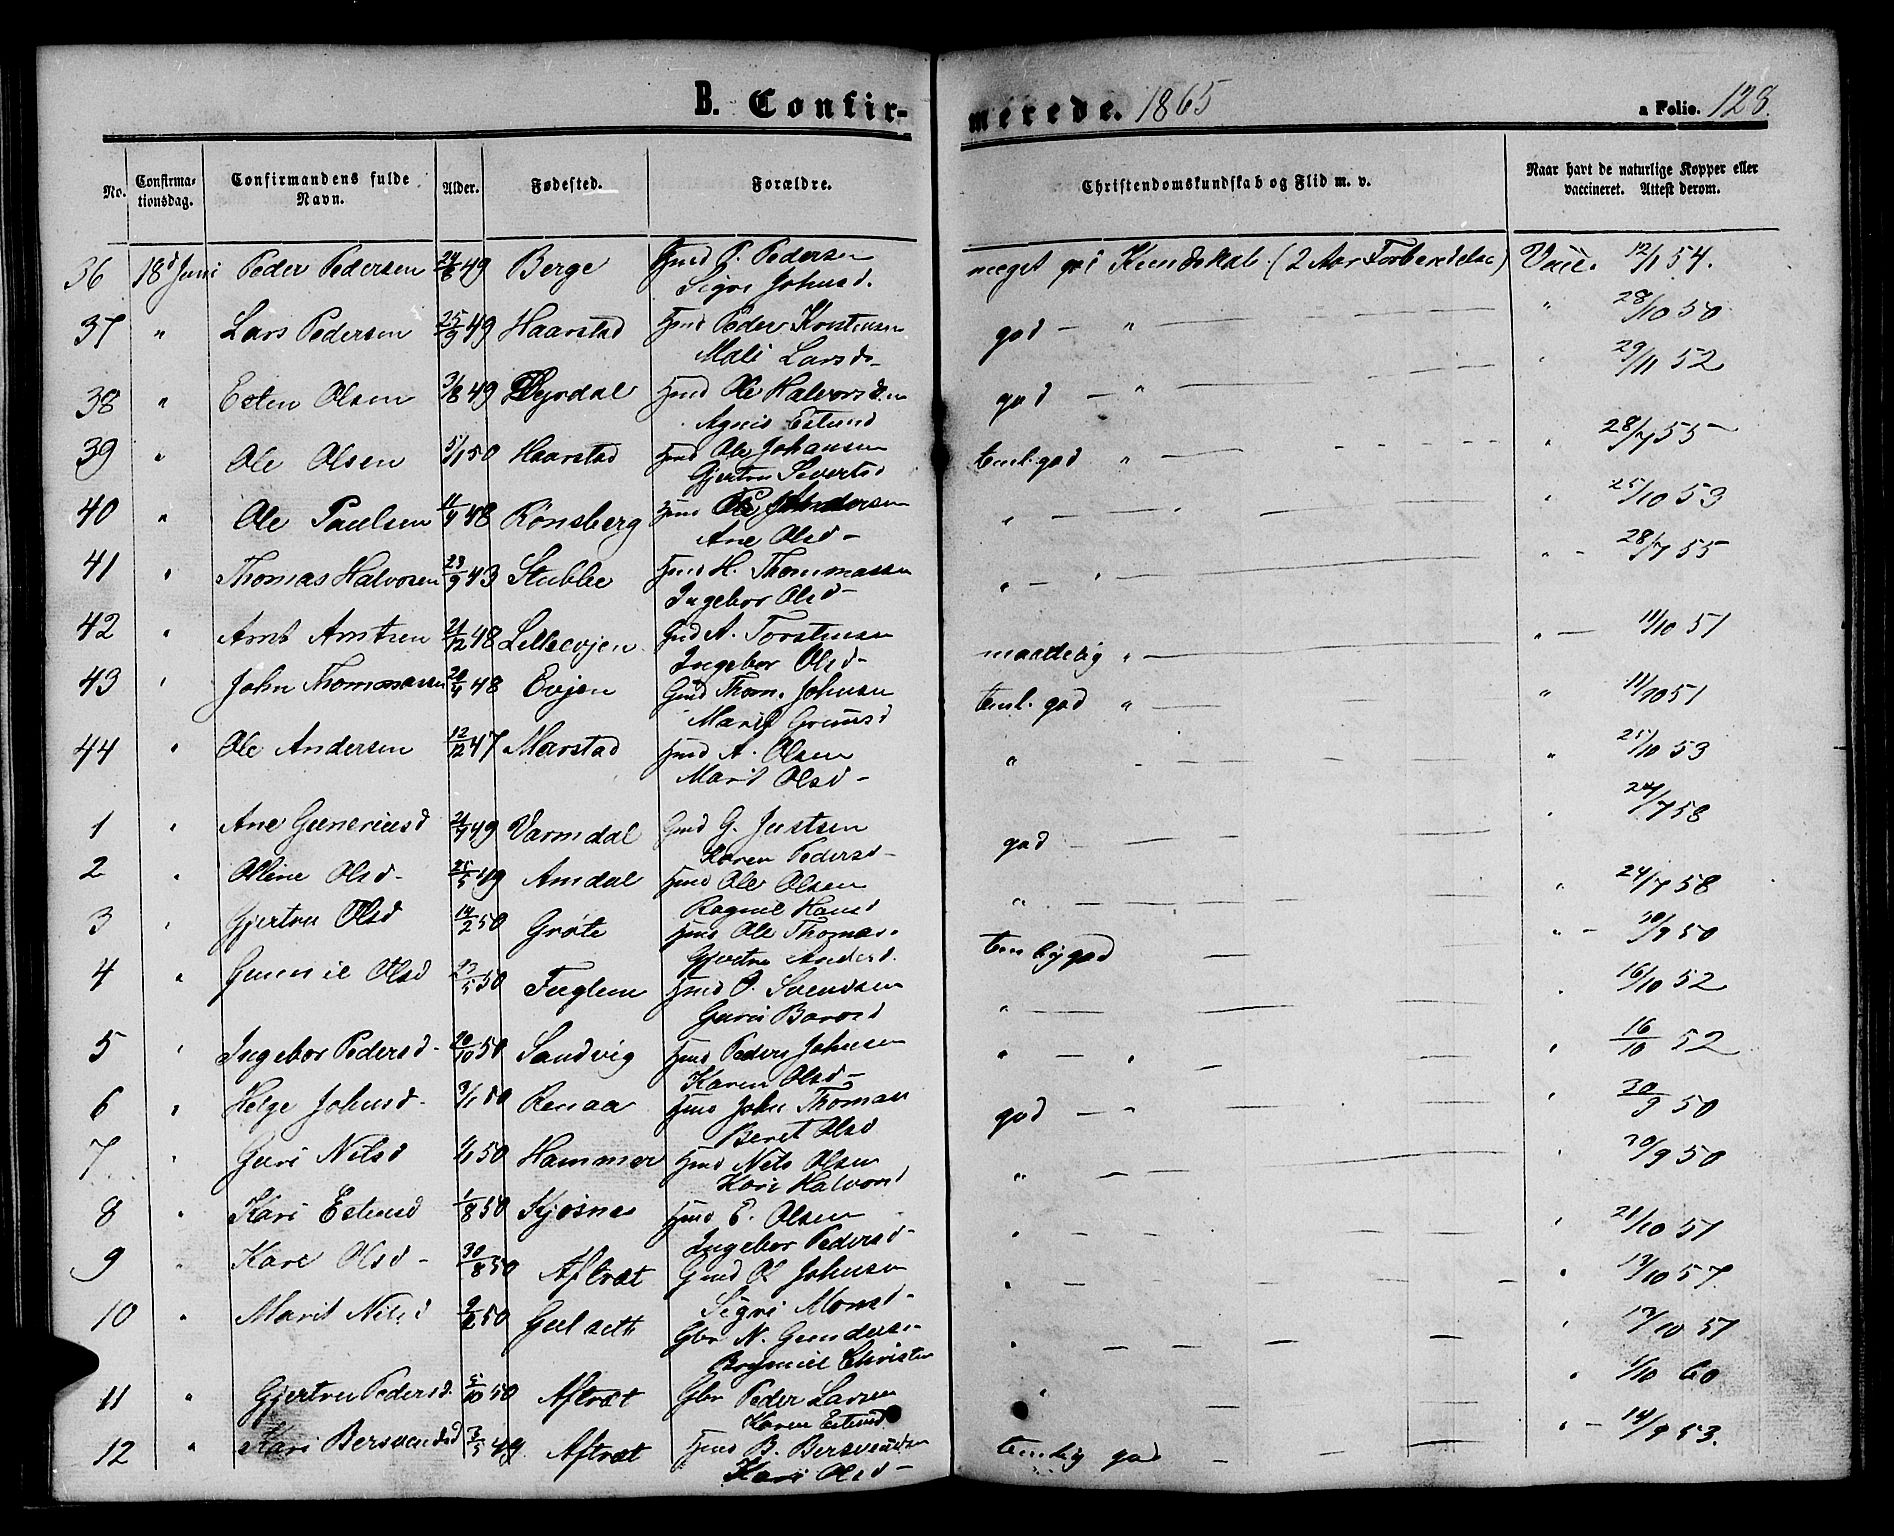 B. Confirmerede. 1865 a Folio. 128.
No. Confirmationsdag. Confirmandens fulde Navn. Alder. Fødested. Forældre. Christendomskundskab og Flid m. v. Naar havt de naturlige Kopper eller vaccineret. Attest derom.
36 18d Juni Peder Pedersen 49 Berge Gmd P. Pedersen meget god Kundskab (2 Aar Forberedelse) Vacc. 12/1 54.
Sigri Johnsd.
37 " Lars Pedersen 25/9 49 Haarstad Hmd Peder god - " " 28/10 50
Mali Larsd-
38 " Esten Olsen 3/8 49 Hyrdal Hmd Ole Halvorsen god - " " 29/11 52
Agnis Estensd
39 " Ole Olsen 5/1 50 Haarstad Hmd Ole Johansen teml. god " " 28/7 55
Gjertru Sivertsd
40 " Ole Paulsen 11/4 48 Rønsberg Hmd Andersen " " 25/10 53
Ane Olsd-
41 " Thomas Halvorsen 23/9 43 Stubbe Hmd H. Thommassen " - " " - 28/7 55
Ingebor Olsd-
42 " Arnt Arntsen 21/12 48 Lilleevjen Gmd A. Torstensen maadelig " - " - 11/10 51
Ingebor Olsd-
43 " John Thomassen 20/4 48 Evjen Gmd Thom. Johnsen teml. god " - " 11/10 51
Marit
44 " Ole Andersen 12/12 47 Marstad Hmd A. Olsen " " 25/10 53
Marit Olsd-
1 " Ane Guneriusd 21/4 49 Varmdal Gmd G. Justsen god " 24/7 58
Karen Pedersd-
2 " Olline Olsd- 25/5 49 Amdal Hmd Ole Olsen " " 24/7 58
Ragnil Hansd
3 " Gjertru Olsd 14/2 50 Grøte Hmd Ole Thomas. temlig god " - 20/9 50
Gjertru Andersd.
4 " Gunnil Olsd 50 Fuglem Hmd O. Svendsen " " 16/10 52
Guri Barosd
5 " Ingebor Pedersd- 20/10 50 Sandvig Hmd Peder Johnsen " - " " 16/10 52
Karen Olsd-
6 " Helge Johnsd- 3/1 50 Renaa Hmd John Thomas god - " " 20/9 50
Beret Olsd
7 " Guri Nilsd 50 Hammer Hmd Nils Olsen " " 20/9 50
Kari Halvorsd
8 " Kari Estensd 1/8 50 Kjøsnes Hmd E. Olsen " " 21/10 51
Ingebor Pedersd-
9 " Kari Olsd- 30/8 50 Aftret Gmd O. Johnsen " " 13/10 57
Sigri Monsd-
10 " Marit Nilsd 50 Gulsett Gbr N. Gunders. " " 51
Christen
11 " Gjertru Pedersd. 5/10 50 Aftret Gbr Peder Larsen " " 1/10 60
Karen Estensd
12 " Kari Bersvendsd 3/5 49 Aftret Hmd B. Bersvendsen temlig god " - 14/9 53.
Kari Olsd-